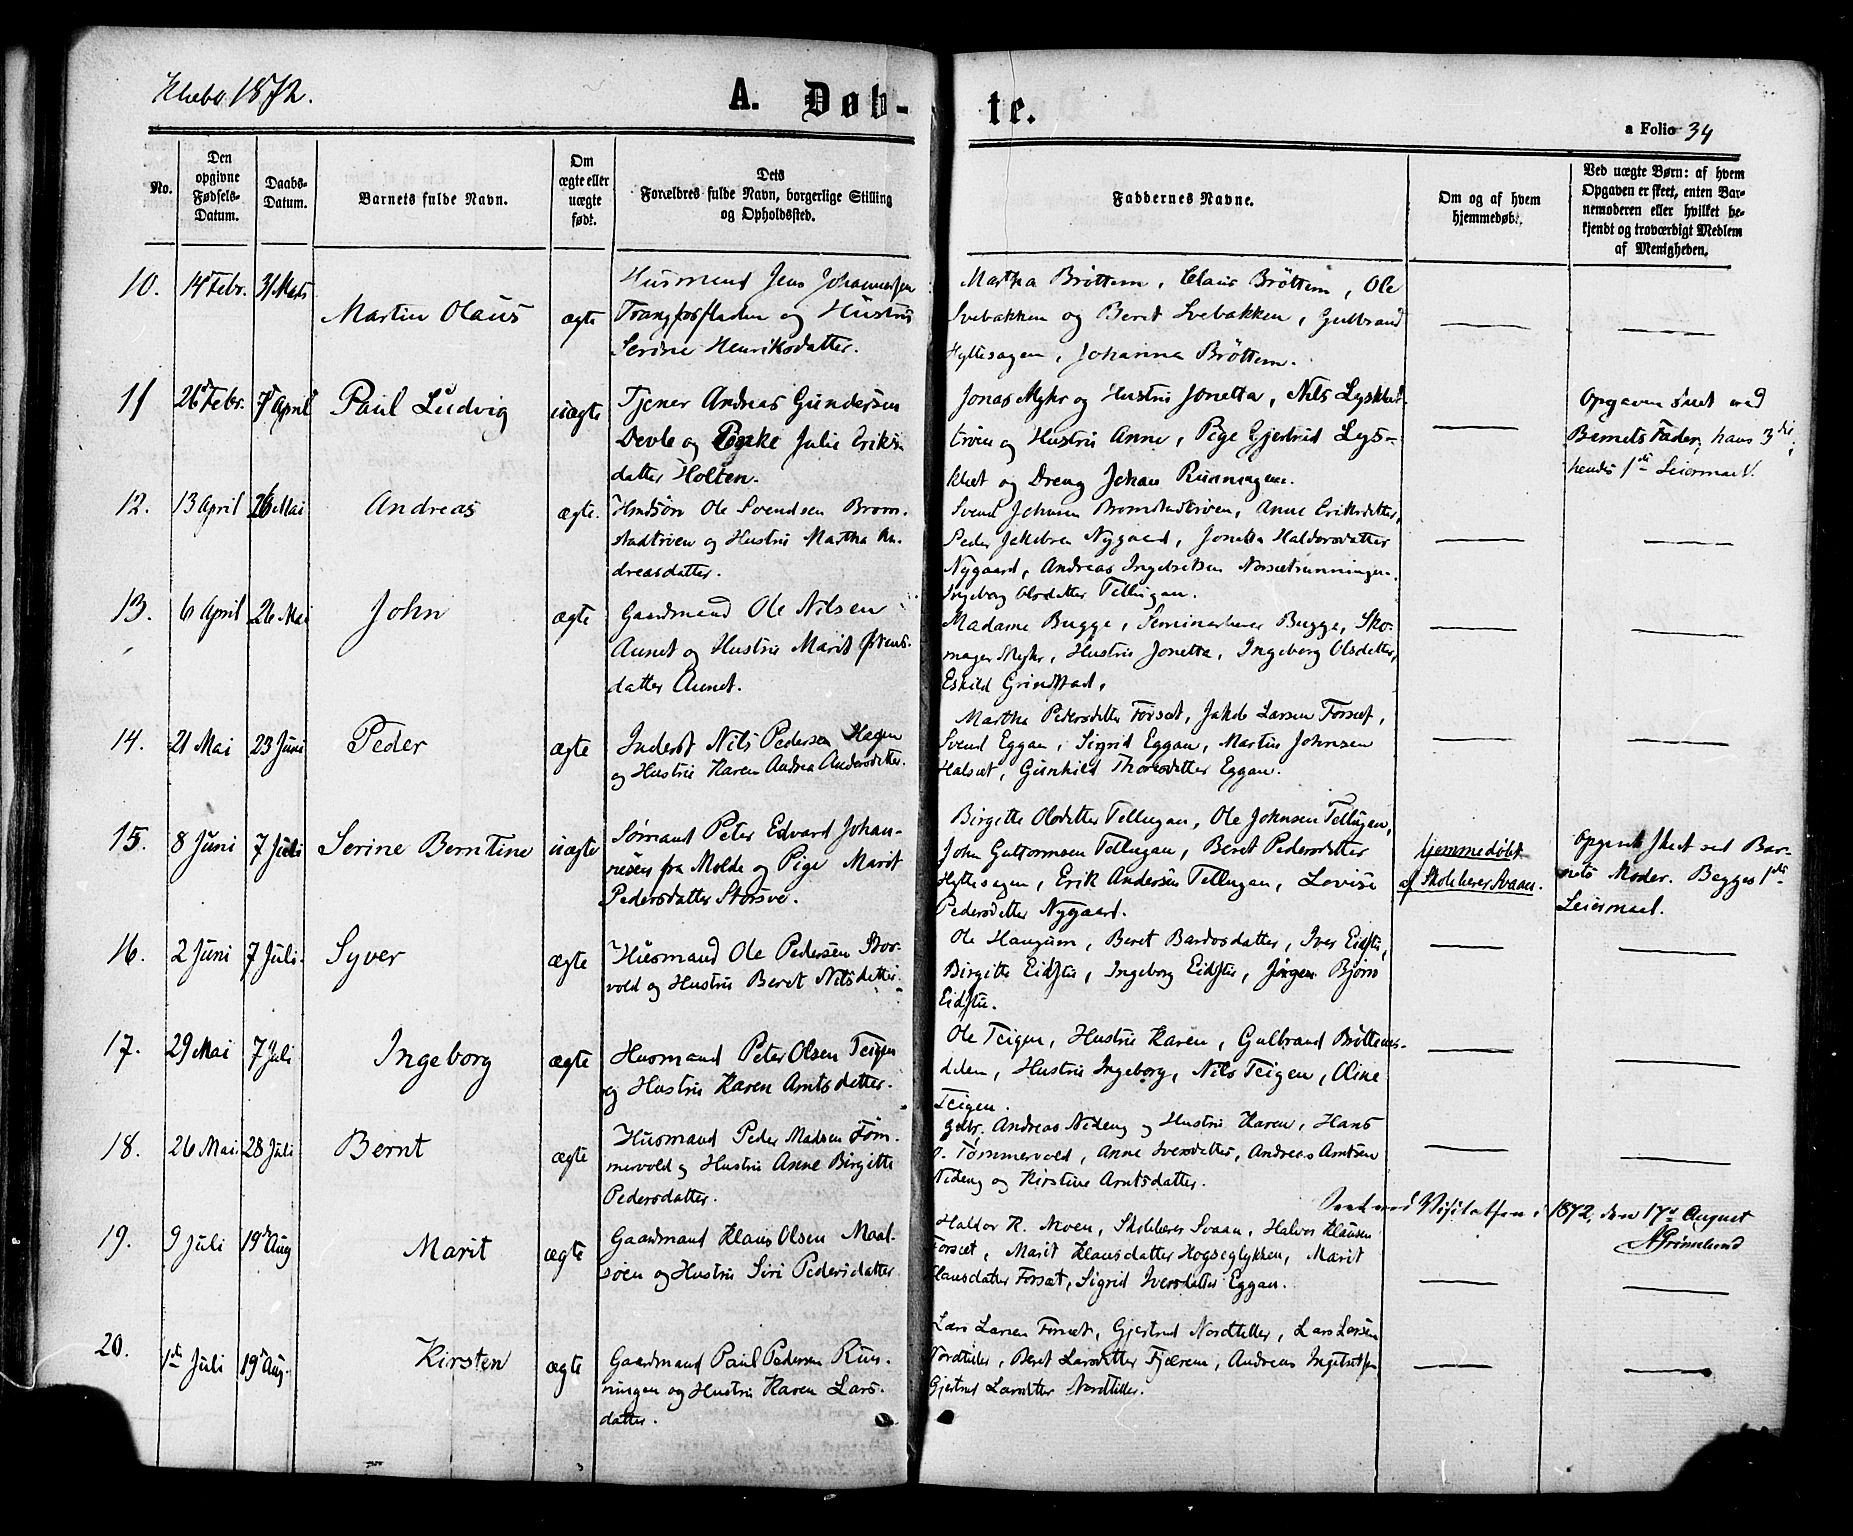 Klæbo 1872.
A. Døb-
te.
a Folio 34
No.
Den
opgivne
Fødsels-
Datum.
Daabs-
Datum.
Barnets fulde Navn.
Om
ægte eller
uægte
født.
Dets
Forældres fulde Navn, borgerlige Stilling
og Opholdssted.
Faddernes Navne.
Om og af hvem
hjemmedøbt.
Ved uægte Børn: af hvem
Opgaven er skeet, enten Bar-
nemoderen eller hvilket be-
kjendt og troværdigt Medlem
af Menigheden.
10. 14 Febr. 31 Marts Martin Olaus ægte
Husmand Jens Johannessen
Trangfosfladen og Hustru
Serine Henriksdatter.
Martha Bröttem, Claus Bröttem, Ole
Svebakken og Beret Svebakken, Gulbrand
Hyttesagen, Johanna Bröttem.
11 26 Febr. 7 April Paul Ludvig uægte
Tjener Andreas Gundersen
Devle og Julie Eriks-
datter Holten.
Jonas Myhr og Hustru Jonetta, Nils Lysklet-
tröen og Hustru Anne, Pige Gjertrud Lys-
klet og Dreng Johan Runningen.
Opgaven skeet ved
Barnets Fader, hans 3die,
hendes 1ste Leiermaal.
12. 13 April 26 Mai Andreas ægte.
Ole Svendsen Brom-
stadtröen og Hustru Martha An-
dreasdatter.
Svend Johnsen Bromstadtröen, Anne Eriksdatter,
Peder Jakobsen Nygaard, Jonetta Haldorsdatter
Nygaard, Andreas Ingebretsen
Ingeborg Olsdatter Tellugan.
13. 6 April 26 Mai John ægte
Gaardmand Ole Nilsen
Aunet og Hustru Marit Östens-
datter Aunet.
Madame Bugge, Seminarlærer Bugge, Sko-
mager Myhr, Hustru Jonetta, Ingeborg Olsdatter,
Eskild Grindstad.
14. 21 Mai 23 Juni Peder ægte
Inderst Nils Pedersen Hagen
og Hustru Karen Andrea Andersdatter.
Martha Pedersdatter Forsæt, Jakob Larsen Forsæt,
Svend Eggan, Sigrid Eggan, Martin Johnsen
Halsæt, Gunhild Thoresdatter Eggan.
15. 8 Juni 7 Juli Serine Berntine uægte
Sømand Peter Edvard Johan-
nesen fra Molde og Pige Marit
Pedersdatter Storsve.
Birgitte Olsdatter Tellugan, Ole Johnsen Tellugan,
John Guttormsen Tellugan, Beret Pedersdatter
Hyttesagen, Erik Andersen Tellugan, Lovise
Pedersdatter Nygaard.
hjemmedøbt
af Skolelærer Svaan.
Opgivet skeet ved Bar-
nets Moder. Begges 1ste
Leiermaal.
16. 2 Juni 7 Juli. Syver ægte
Husmand Ole Pedersen Stor-
vold og Hustru Beret Nilsdatter.
Ole Haugum, Beret Bardosdatter, Iver Eidstu,
Birgitte Eidstu, Ingeborg Eidstu, Jörgen Björn
Eidstu.
17. 29 Mai 7 Juli Ingeborg ægte
Husmand Peter Olsen Teigen
og Hustru Karen Arntsdatter.
Ole Teigen, Hustru Karen, Gulbrand Bröttems-
dalen, Hustru Ingeborg, Nils Teigen, Oline
Teigen.
18. 26 Mai 28 Juli Bernt ægte
Husmand Peder Madsen Töm-
mervold og Hustru Anne Birgitte
Pedersdatter.
Gdbr. Andreas Nideng og Hustru Karen, Hans
Tømmervold, Anne Iversdatter, Andreas Arntsen
Nideng og Kirstine Arntsdatter.
Seet ved Visitatsen i 1872, den 17de August
AGrimelund
19. 9 Juli 19 Aug Marit ægte
Gaardmand Klaus Olsen Maal-
søen og Hustru Siri Pedersdatter
Haldor K. Moen, Skolelærer Svaan, Halvor Klausen
Forsæt, Marit Klausdatter Hogseglykken, Marit
Hansdatter Forsæt, Sigrid Iversdatter Eggan.
20. 1ste Juli 19 Aug. Kirsten ægte
Gaardmand Paul Pedersen Run-
ningen og Hustru Karen Lars-
datter.
Lars Larsen Forsæt, Gjertrud Nordtiller, Lars Larsen
Nordtiller, Beret Larsdatter Fjærem, Andreas Ingebretsen
Gjertrud Larsdatter Nordtiller.